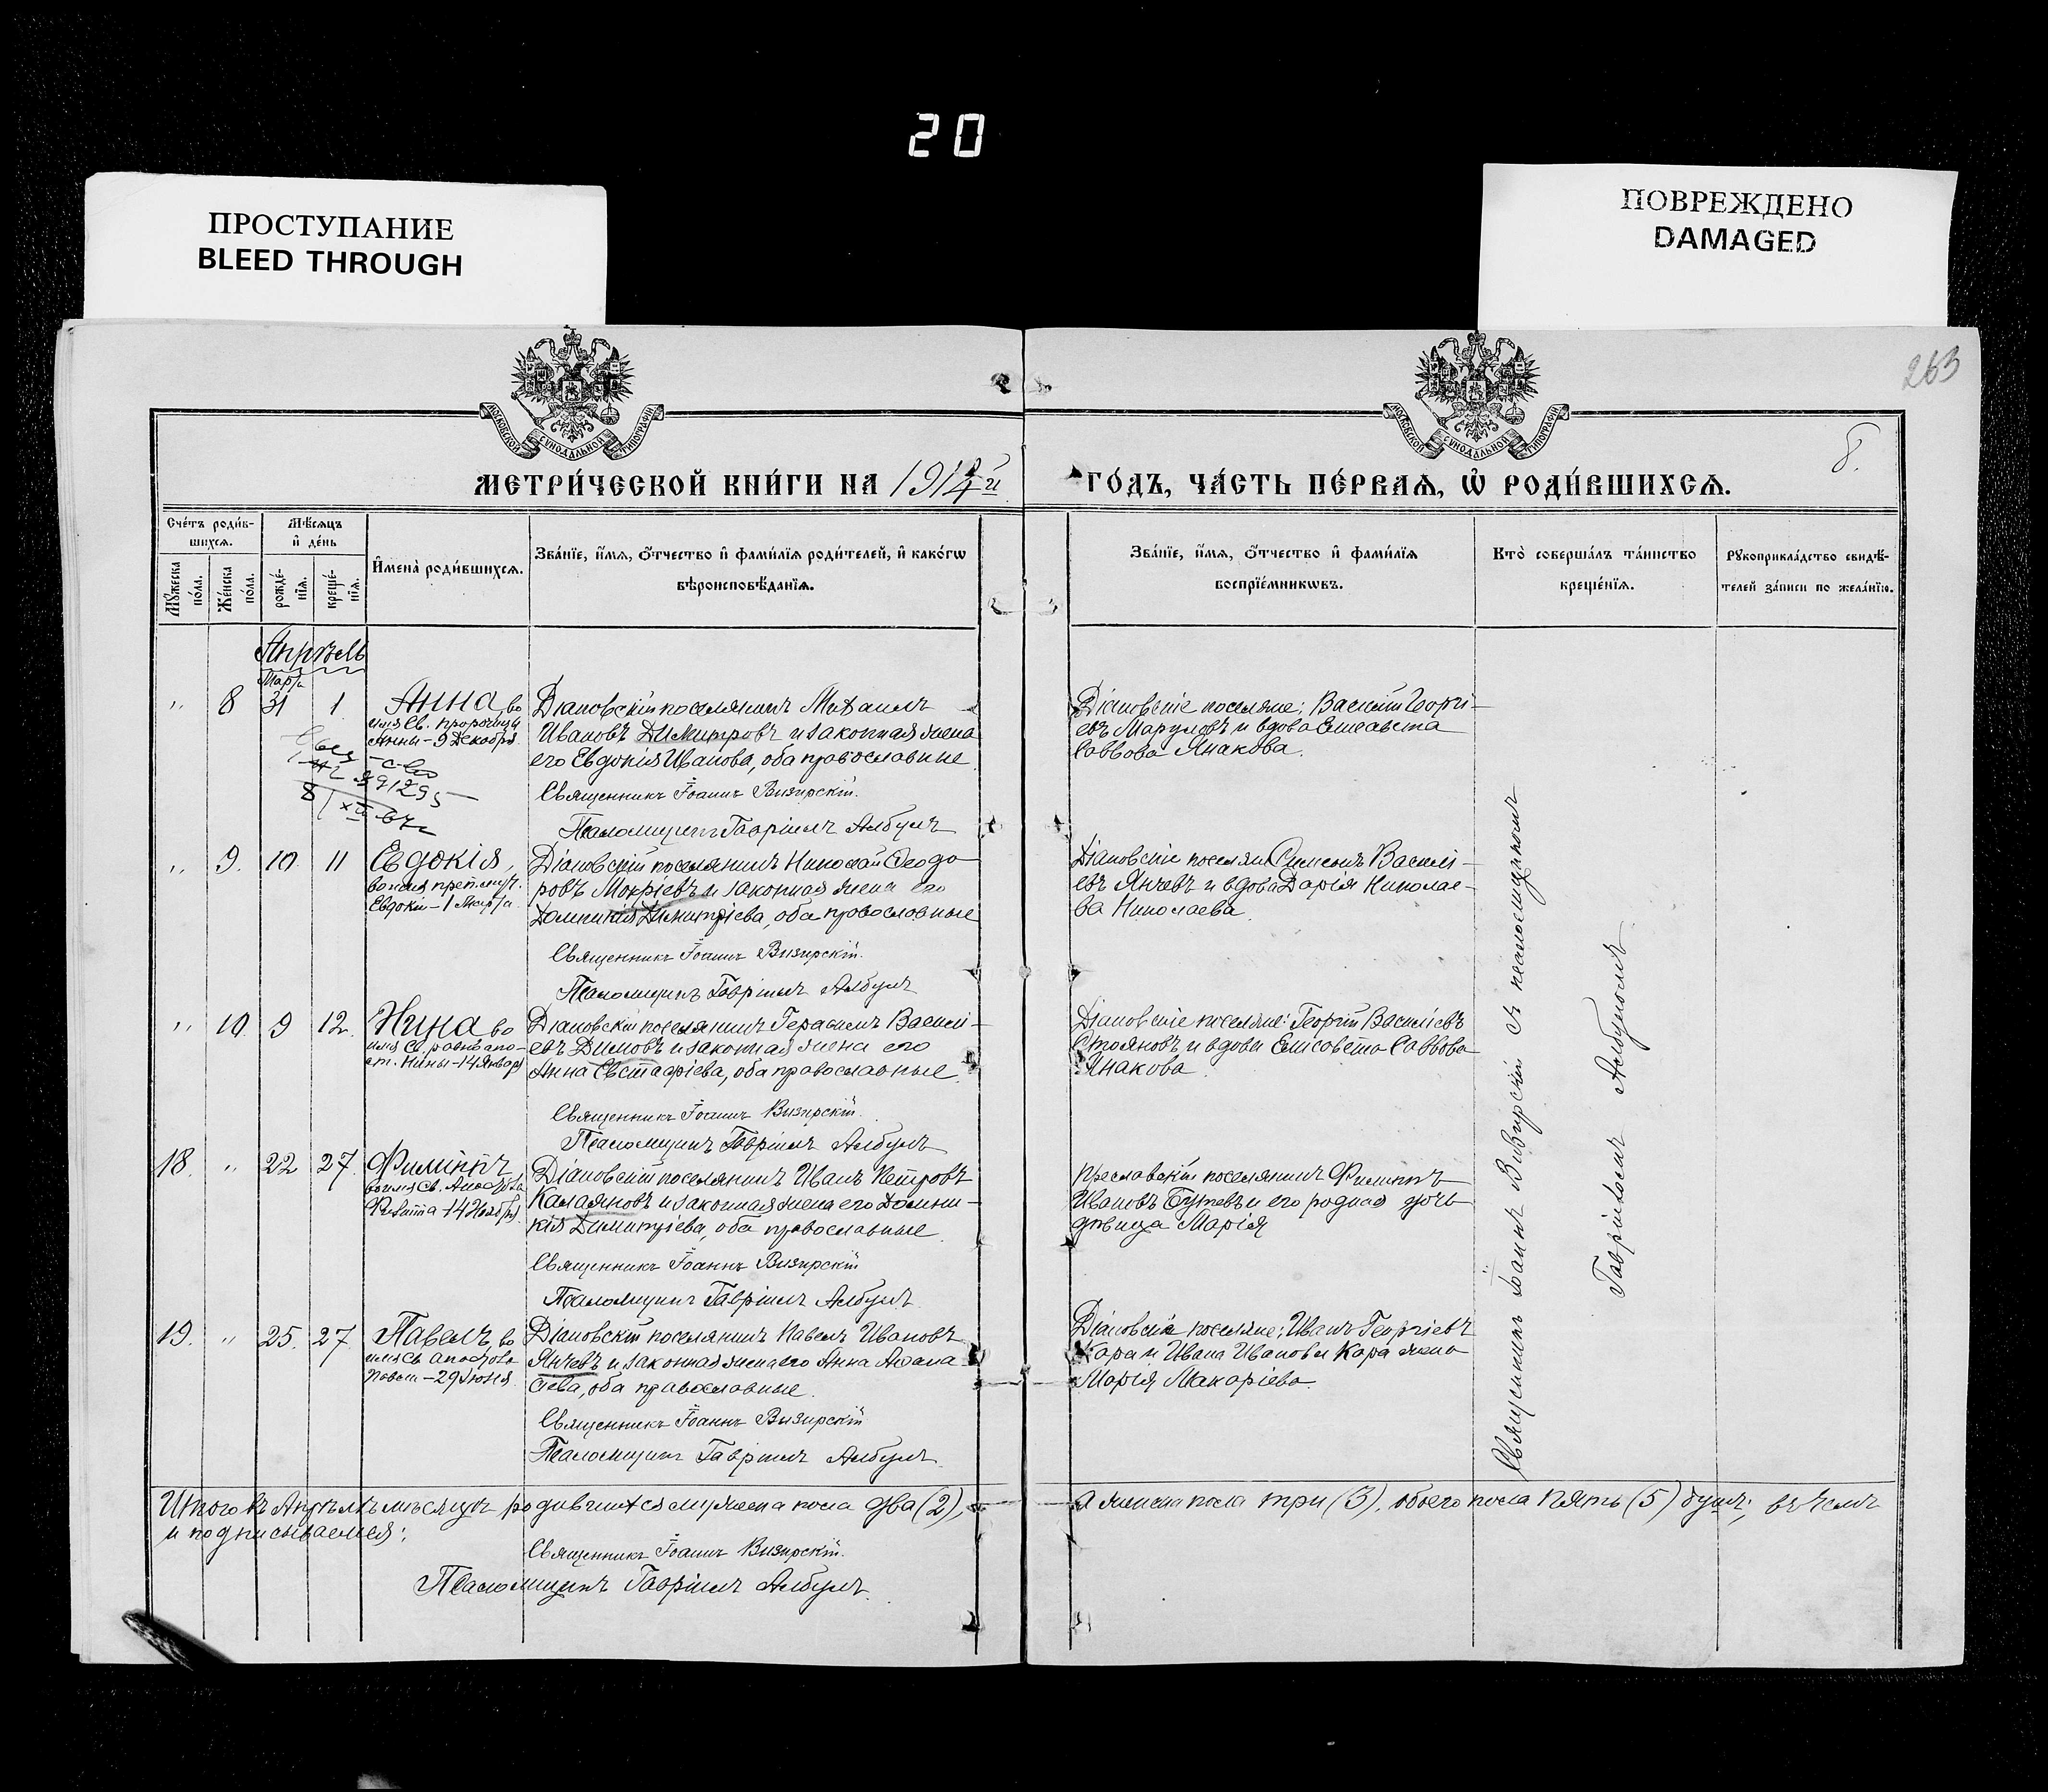 20
ПРОСТУПАНИЕ
BLEED THROUGH
ПОВРЕЖДЕНО
DAMAGED
263
МОСКОВСКОЙ СУНОДАЛЬНОЙ ТИПОГРАФІИ
МОСКОВСКОЙ СУНОДАЛЬНОЙ ТИПОГРАФІИ
8.
МЕТРИ́ЧЕСКОЙ КНИ́ГИ НА 1914й ГО́ДЪ, ЧА́СТЬ ПЕ́РВАѦ, Ѡ҆ РОДИ́ВШИХСѦ.
Сче́тъ роди́в-
шихсѧ.
Мꙋ́жеска по́ла.
Же́нска по́ла.
Мѣ́сѧцъ
и҆ де́нь
рожде́-
нїѧ.
креще́-
нїѧ.
И҆мена̀ роди́вшихсѧ.
Зва́нїе, и҆́мѧ, ѻ҆́тчество и҆ фами́лїѧ роди́телей, и҆ како́гѡ
вѣроисповѣ́данїѧ.
Зва́нїе, и҆́мѧ, ѻ҆́тчество и҆ фами́лїѧ
воспрїе́мникѡвъ.
Кто̀ соверша́лъ та́инство
креще́нїѧ.
Рꙋкоприкла́дство свидѣ́-
телей за́писи по жела́нїю.
Апрѣль
Марта
" 8 31 1
Анна, во
имя Св. пророчицы
Анны - 9 Декабря
8/XII-67г
Діановскій поселянинъ Михаилъ
Ивановъ Димитровъ и законная жена
его Евдокія Иванова, оба православные.
Священникъ Іоаннъ Визирскій.
Псаломщикъ Гавріилъ Албулъ
Діановскіе поселяне: Василій Георгі-
евъ Маруловъ и вдова Елисавета
Саввова Янакова.
" 9. 10. 11
Евдокія,
во имя преп. муч.
Евдокіи - 1 Марта
Діановскій поселянинъ Николай Ѳеодо-
ровъ Мокріевъ и законная жена его
Домникія Димитріева, оба православные
Священникъ Іоаннъ Визирскій.
Псаломщикъ Гавріилъ Албулъ
Діановскіе поселяне Симеонъ Василі-
евъ Янчевъ и вдова Дарія Николае-
ва Николаева.
" 10 9 12.
Нина во
имя Св. равноапо-
ст. Нины - 14 Января
Діановскій поселянинъ Герасимъ Василі-
евъ Димовъ и законная жена его
Анна Евстафіева, оба православные.
Священникъ Іоаннъ Визирскій.
Псаломщикъ Гавріилъ Албулъ
Діановскіе поселяне: Георгій Василіевъ
Стояновъ и вдова Елисавета Саввова
Янакова.
18. " 22 27.
Филиппъ,
во имя Св. Апостола
Филиппа - 14 Ноября
Діановскій поселянинъ Иванъ Петровъ
Калаяновъ и законная жена его Домни-
кія Димитріева, оба православные.
Священникъ Іоаннъ Визирскій
Псаломщикъ Гавріилъ Албулъ.
Преславскій поселянинъ Филиппъ
Ивановъ и его родная дочь
дѣвица Марія
19. " 25. 27
Павелъ, во
имя Св. апостола
Павла - 29 Іюня
Діановскій поселянинъ Павелъ Ивановъ
Янчевъ и законная жена его Анна Аѳана-
сіева, оба православные.
Священникъ Іоаннъ Визирскій
Псаломщикъ Гавріилъ Албулъ.
Діановскіе поселяне: Иванъ Георгіевъ
Кара и Ивана Иванова Кара жена
Марія Макаріева.
Священникъ Іоаннъ Визирскій съ псаломщикомъ
Гавріиломъ Албуломъ
Итого въ Апрѣлѣ мѣсяцѣ родившихся мужеска пола два (2), а женска пола три (3), обоего пола пять (5) душъ; въ чемъ
и подписываемся:
Священникъ Іоаннъ Визирскій.
Псаломщикъ Гавріилъ Албулъ.